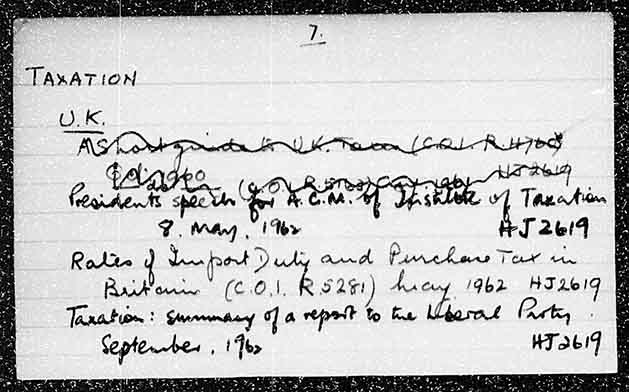 7.
TAXATION
U.K.
A Short guide to U.K. Taxes (C.O.I. R 4760)
Oct. 1960 HJ2619
(C.O.I. 1961
Presidents speech for A.G.M. of Institute of Taxation
8. May, 1962 HJ2619
Rates of Import Duty and Purchase Tax in
Britain (C.O.I. R5281) May 1962 HJ2619
Taxation: summary of a report to the Liberal Party.
September, 1962 HJ2619